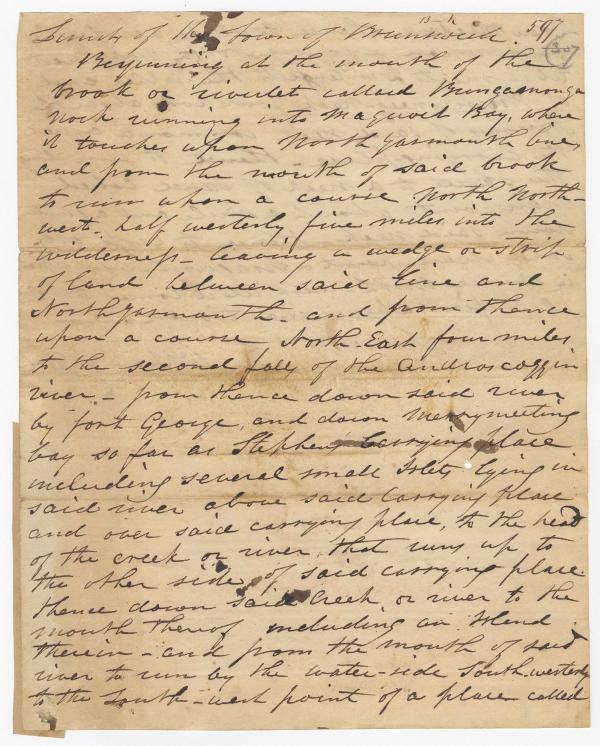 Limits of the Town of Brunswick. 597
13 307
Beginning at the mouth of the
brook or riverlet called Bungamonga
nock running into Maquoit Bay, where
it touches upon North Yarmouth line,
and from the mouth of said brook
to run upon a course North North-
west- half westerly five miles into the
wilderness- leaving a wedge or strip
of land between said line and
North Yarmouth- and from thence
upon a course North-East four miles
to the second falls of the Androscoggin
river- from thence down said river
by fort George, and down Merrymeeting
bay so far as Stephens Carrying place
including several small Islets lying in
said river above said Carrying place
and over said carrying place, to the head
of the creek or river, that runs up to
the other side of said carrying place.
thence down said Creek or river to the
mouth thereof including an Island
therein- and from the mouth of said
river to run by the water-side South-westerly
to the South-west point of a place called